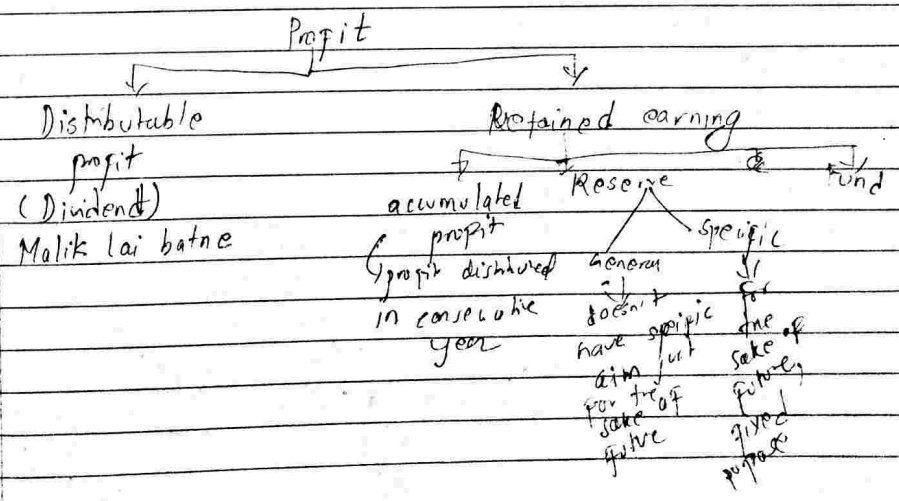 Profit
Distributable
profit
(Dividend)
Malik lai batne
Retained earning
accumulated
profit
profit distributed
in consecutive
year
Reserve
General
doesn't
have speific
aim just
for the
sake of
future
specific
for
the
sake of
future,
fixed
purpose
Fund